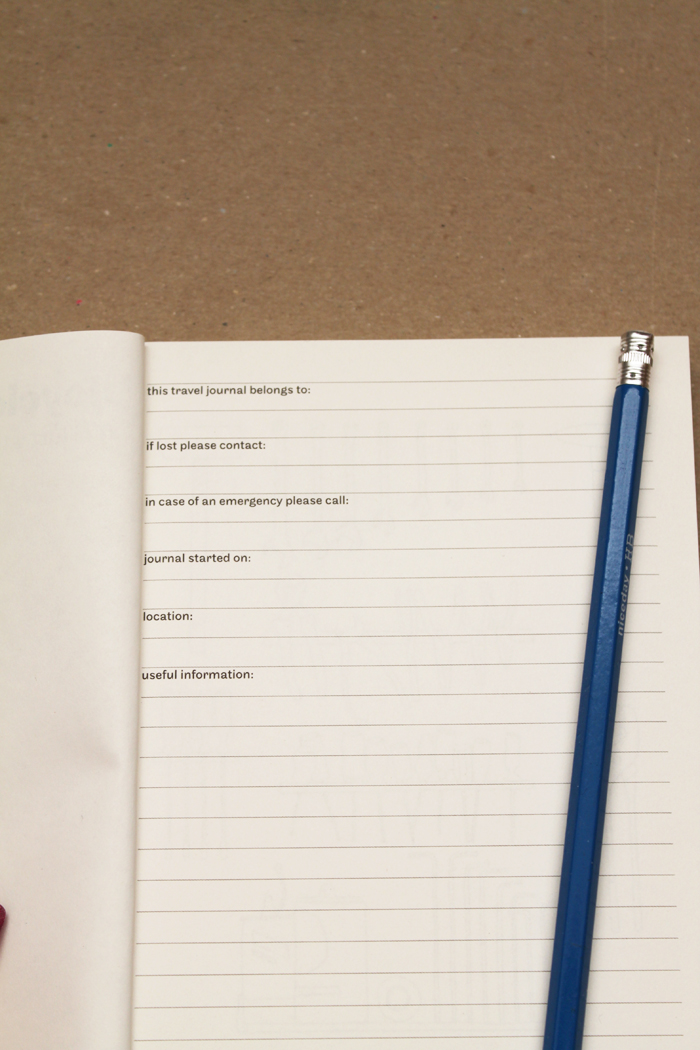 this travel journal belongs to:
if lost please contact:
in case of an emergency please call:
journal started on:
location:
useful information:
niceday • HB